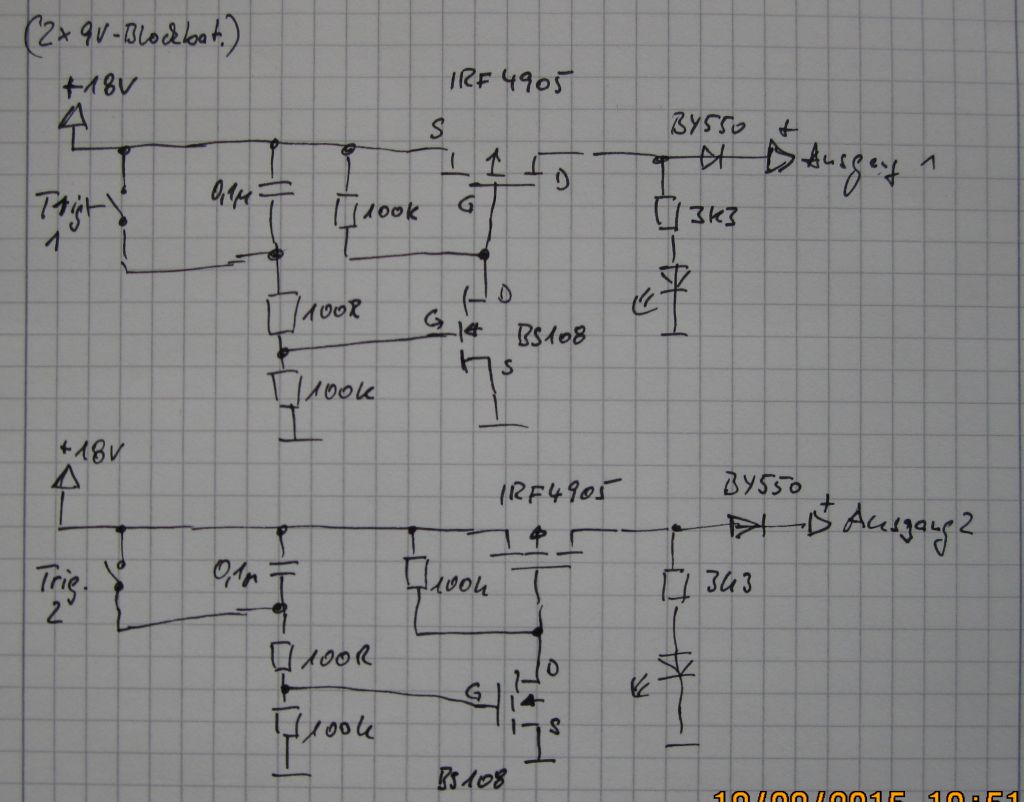 (2x 9V-Blockbat.)
+18V
IRF 4905
S
BY550
+
Ausgang 1
Trig
1
0,1µ
100k
G
D
3k3
D
100R
G
BS108
S
100k
+18V
IRF4905
BY550
+
Ausgang 2
Trig.
2
0,1µ
100k
3k3
100R
D
G
S
100k
BS108